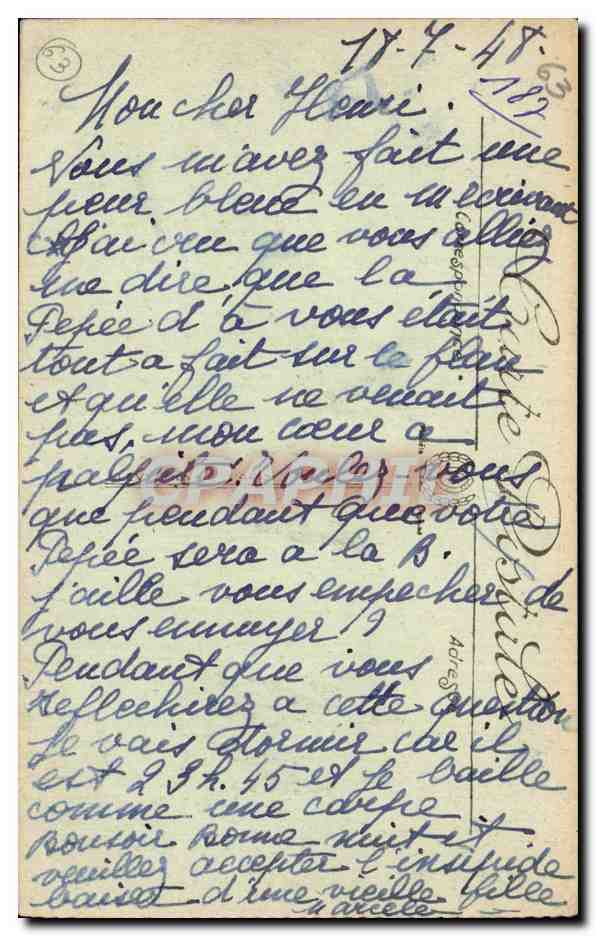 63
18-7-48.
63
182
Mon cher Henri.
Vous m'avez fait une
peur bleue en m'ecrivant
J'ai cru que vous alliez
me dire que la
Pepée d'à vous était
tout a fait sur le flan
et qu'elle ne venait
pas, mon cœur a
palpité ! Voulez-vous
que pendant que votre
Pepée sera a la B.
j'aille vous empecher de
vous ennuyer ?
Pendant que vous
reflechirez a cette question
Je vais dormir car il
est 23h.45 et je baille
comme une carpe
Bonsoir Bonne nuit et
veuillez accepter l'insipide
baiser d'une vieille fille
Marcelle
Carte Postale
Correspondance
Adresse
CPAPHIL